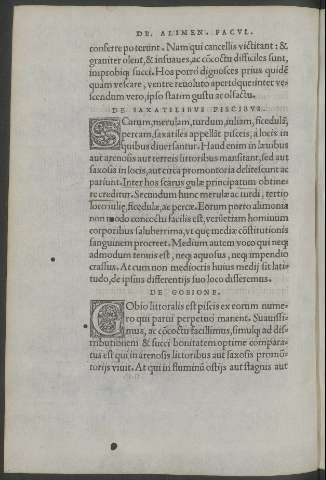 DE ALIMEN. FACVL.
conferre poterint. Nam qui cancellis victitant: &
grauiter olent, & insuaues, ac cōcoctu difficiles sunt,
improbiq; succi. Hos porrò dignosces prius quidē
quàm vescare, ventre reuoluto apertóque: inter ves
scendum verò, ipso statim gustu ac olfactu.
DE SAXATILIBVS PISCIBVS.
SCarum, merulam, turdum, iuliam, ficedulā,
percam, saxatiles appellāt pisceis; à locis in
quibus diuersantur. Haud enim in læuibus
aut arenosis aut terreis littoribus mansitant, sed aut
saxosis in locis, aut circa promontoria delitescunt ac
pariunt. Inter hos scarus gulæ principatum obtine-
re creditur. Secundùm hunc merulæ ac turdi, tertio
loco iuliæ, ficedulæ, ac percæ. Eorum porrò alimonia
non modò concoctu facilis est, verùetiam hominum
corporibus saluberrima, vt quę mediæ cōstitutionis
sanguinem procreet. Medium autem voco qui neq;
admodum tenuis est, neq; aquosus, neq; impendio
crassus. At cum non mediocris huius medij sit lati-
tudo, de ipsius differentijs suo loco disseremus.
DE GOBIONE.
GObio littoralis est piscis ex eorum nume-
ro qui parui perpetuò manent. Suauissi-
mus, ac cōcoctu facillimus, simulq; ad dis-
tributionem & succi bonitatem optimè compara-
tus est qui in arenosis littoribus aut saxosis promō-
torijs viuit. At qui in fluminū ostijs aut stagnis aut